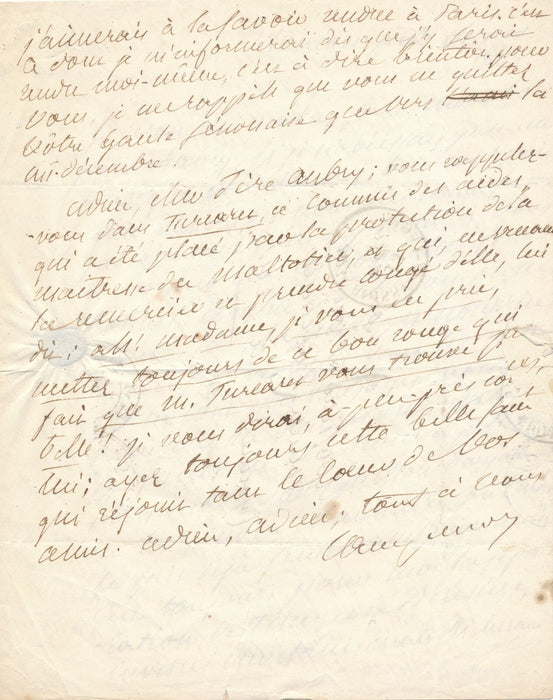 j'aimerais à la savoir rendue à Paris. c'est
à dont je m'informerai dès que j'y serai
rendu moi-même, c'est à dire bientôt. pour
vous, je me rappelle que vous ne quittez
vôtre
que vers la
mi-décembre.
adieu, cher Père Aubry; vous rappelez-
vous dans Turcaret, ce commis des aides
qui a été placé par la protection de la
maîtresse du maltotier, et qui, en venant
la remercier et prendre congé d'elle, lui
dit: ah! madame, je vous en prie,
mettez toujours de ce bon rouge qui
fait que M. Turcaret vous trouve si
belle! je vous dirai, à-peu-près comme
lui; ayez toujours cette belle santé
qui réjouit tant le coeur de vos
amis. adieu, adieu; tout à vous